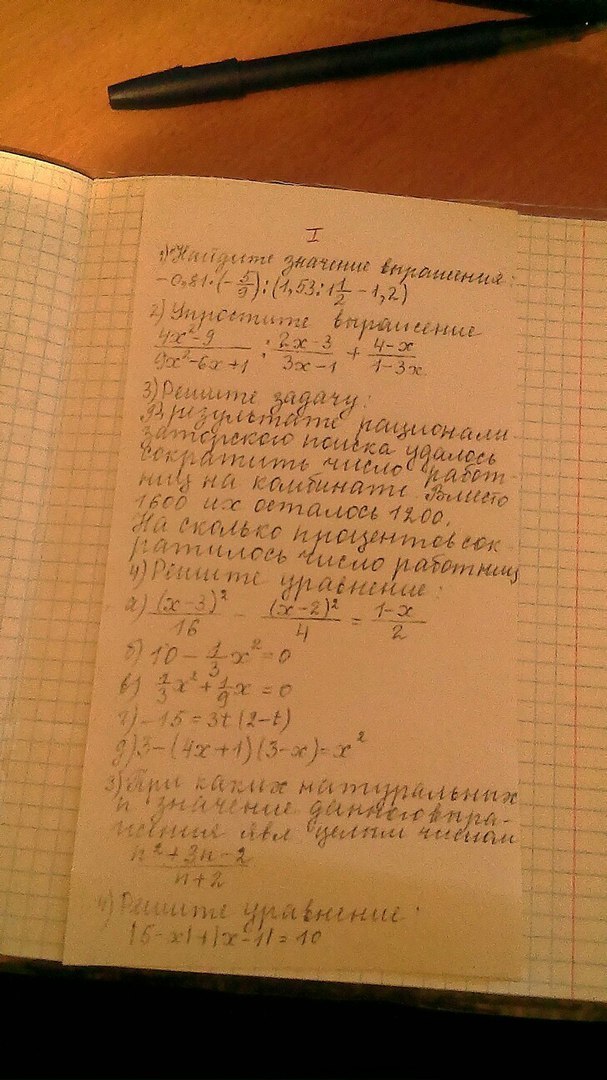 I
1) Найдите значение выражения:
-0,81·(-5/9):(1,53:1 1/2 -1,2)
2) Упростите выражение
4x²-9/9x²-6x+1 : 2x-3/3x-1 + 4-x/1-3x
3) Решите задачу:
В результате рационали
заторского поиска удалось
сократить число работ-
ниц на комбинате. Вместо
1600 их осталось 1200.
На сколько процентов сок-
ратилось число работниц
4) Решите уравнение:
а) (x-3)²/16 - (x-2)²/4 = 1-x/2
б) 10 - 1/3 x² = 0
в) 1/3 x² + 1/9 x = 0
г) -15 = 3t(2-t)
д) 3-(4x+1)(3-x)=x²
3) При каких натуральных
n значение данного выра-
жения явл целым числом
n²+3n-2/n+2
4) Решите уравнение:
|5-x|+|x-1|=10